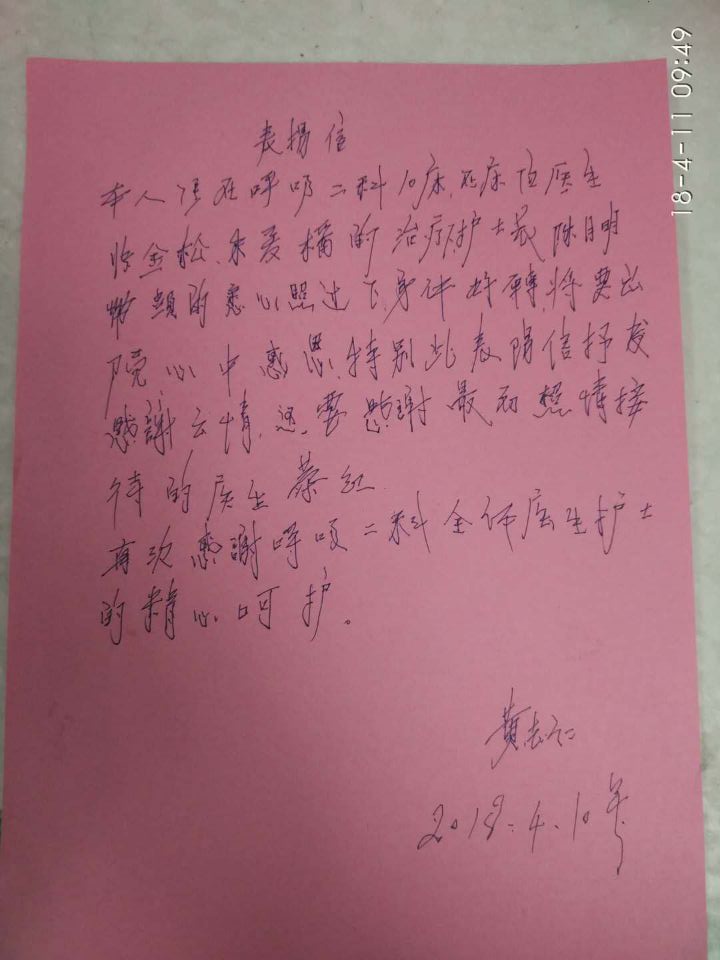 表揚信
本人住在呼吸二科10床,在床位医生
金松、朱爱 的治疗,护士长 陈明
的悉心照过下,身体好轉,将要出
院,心中感恩,特别此表揚信抒发
感謝之情,还要感謝最初热情接
待的医生蔡红.
再次感謝呼吸二科全体医生护士
的精心呵护。
黄志仁
2018.4.10号
18-4-11 09:49